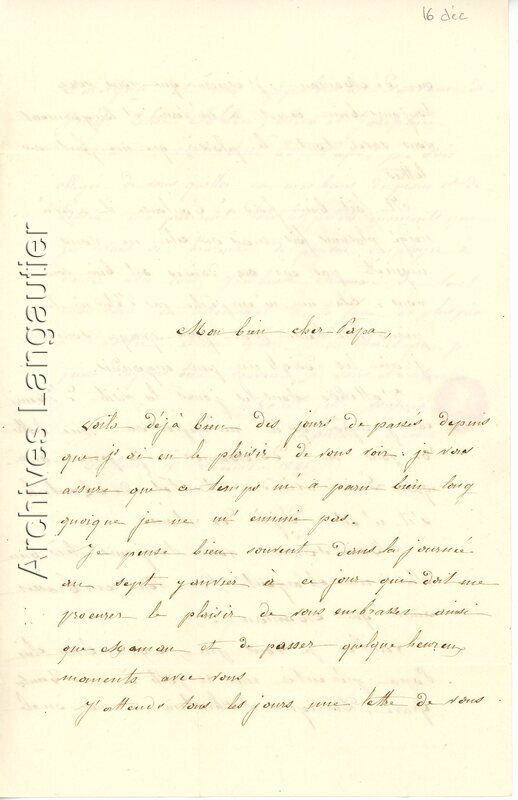 16 déc
Mon bien cher Papa,
Voila déjà bien des jours de passés depuis
que j'ai eu le plaisir de vous voir. je vous
assure que ce temps m'a paru bien long
quoique je ne m'ennuie pas.
Je pense bien souvent dans la journée
au sept janvier à ce jour qui doit me
procurer le plaisir de vous embrasser ainsi
que Maman et de passer quelque heureux
moments avec vous
J'attends tous les jours une lettre de vous
Archives Langautier